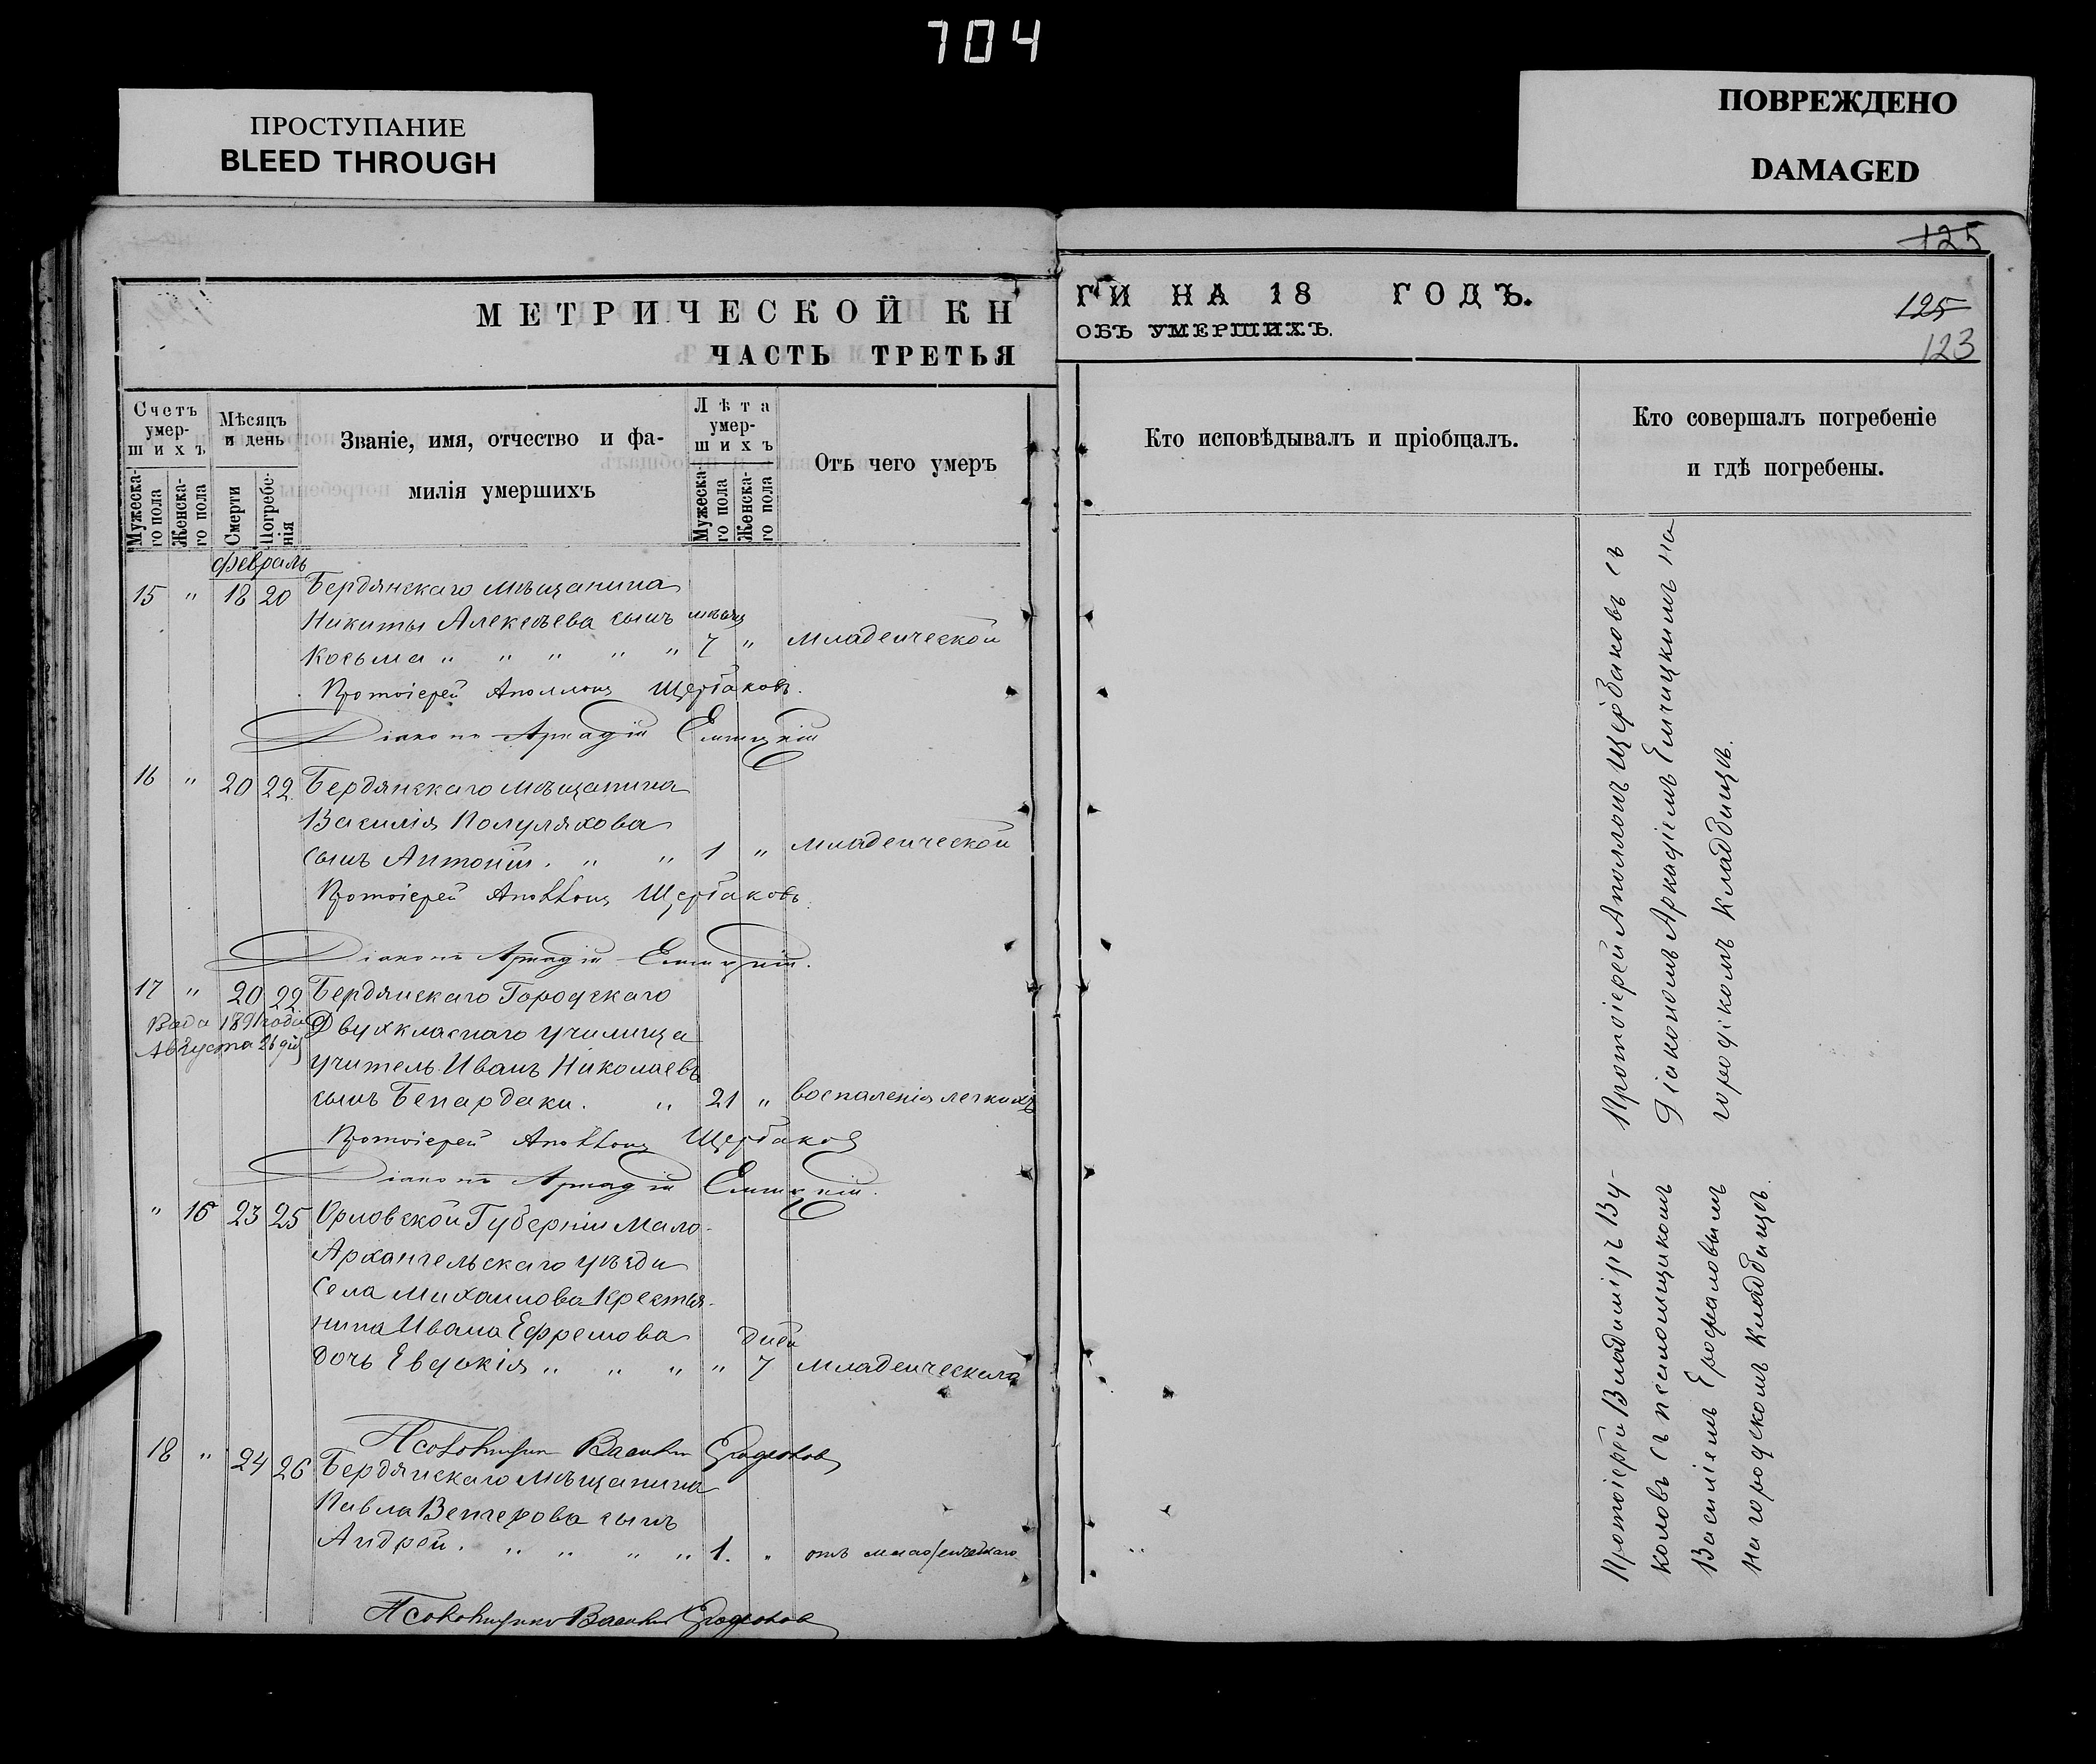 704
ПРОСТУПАНИЕ
BLEED THROUGH
ПОВРЕЖДЕНО
DAMAGED
125
125
123
МЕТРИЧЕСКОЙ КН
ЧАСТЬ ТРЕТЬЯ
ГИ НА 18 ГОДЪ.
ОБЪ УМЕРШИХЪ.
Счетъ умер-
шихъ
Мужеска-
го пола
Женска-
го пола
Мѣсяцъ
и день
Смерти
Погребе-
нія
Званіе, имя, отчество и фа-
милія умершихъ
Лѣта
умер-
шихъ
Мужеска
го пола
Женска-
го пола
Отъ чего умеръ
Кто исповѣдывалъ и пріобщалъ.
Кто совершалъ погребеніе
и гдѣ погребены.
февраль
15 " 18 20 Бердянскаго мѣщанина
Никиты Алексѣева сынъ мѣсяц
Косьма " " " " " 7 " Младенческой
Протоіерей Аполлонъ Щербаковъ.
Діаконъ Аркадій Еминцкій
16 " 20 22. Бердянскаго мѣщанина
Василія Полуляхова
сынъ Антоній. " " 1 " младенческой
Протоіерей Аполлонъ Щербаковъ.
Діаконъ Аркадій
17 " 20 22 Бердянскаго Городскаго
1891 года Двухкласнаго училища
Августа 26 дня учитель Иванъ Николаевъ
сынъ Бепардаки. " 21 " воспаленія легкихъ
Протоіерей Аполлонъ Щербаковъ
Діаконъ Аркадій
" 16 23 25 Орловской Губерніи Мало-
Архангельскаго уѣзда
Села Михаилова Крестья-
нина Ивана Ефремова дней
дочь Евдокія " " " " 7 младенческаго
Псаломщикъ Василій
18 " 24 26 Бердянскаго Мѣщанина
Павла сынъ
Андрей. " " " " 1. " отъ младенческаго
Псаломщикъ Василій
Протоіерей Аполлонъ Щербаковъ съ
Діакономъ Аркадіемъ на
городскомъ Кладбищѣ.
Протоіерей Владиміръ Ву-
коловъ съ псаломщикомъ
Василіемъ
на городскомъ Кладбищѣ.